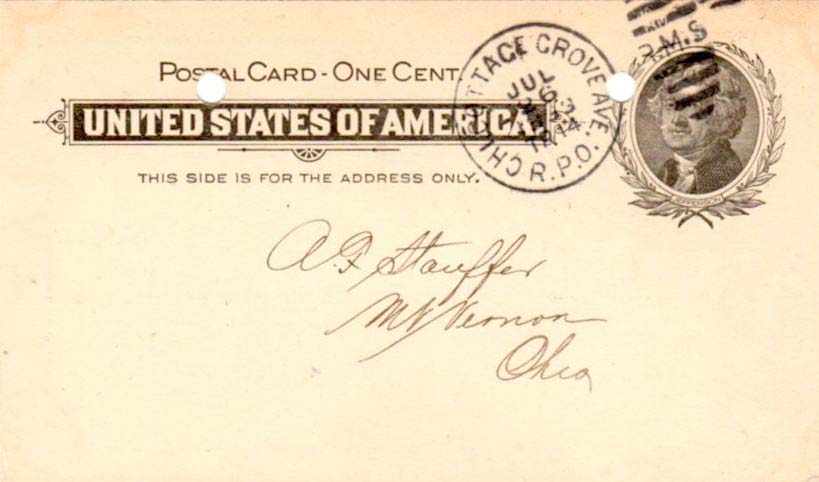 POSTAL CARD - ONE CENT.
UNITED STATES OF AMERICA.
THIS SIDE IS FOR THE ADDRESS ONLY.
COTTAGE GROVE AVE.
CHI.
R.P.O.
JUL
R.M.S
JEFFERSON
A. F. Stauffer
Mt Vernon
Ohio